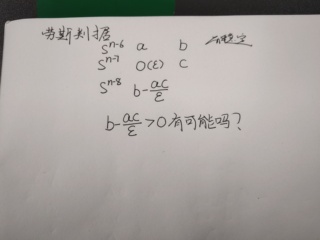 劳斯判据
S^{n-6} a b 不稳定
S^{n-7} 0(ε) c
S^{n-8} b-\frac{ac}{ε}
b-\frac{ac}{ε}>0有可能吗?